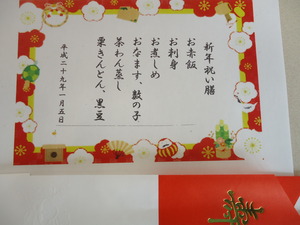 新年祝い膳
お赤飯
お刺身
お煮しめ
おなます、数の子
茶わん蒸し
栗きんとん、黒豆
平成二十九年一月五日
寿